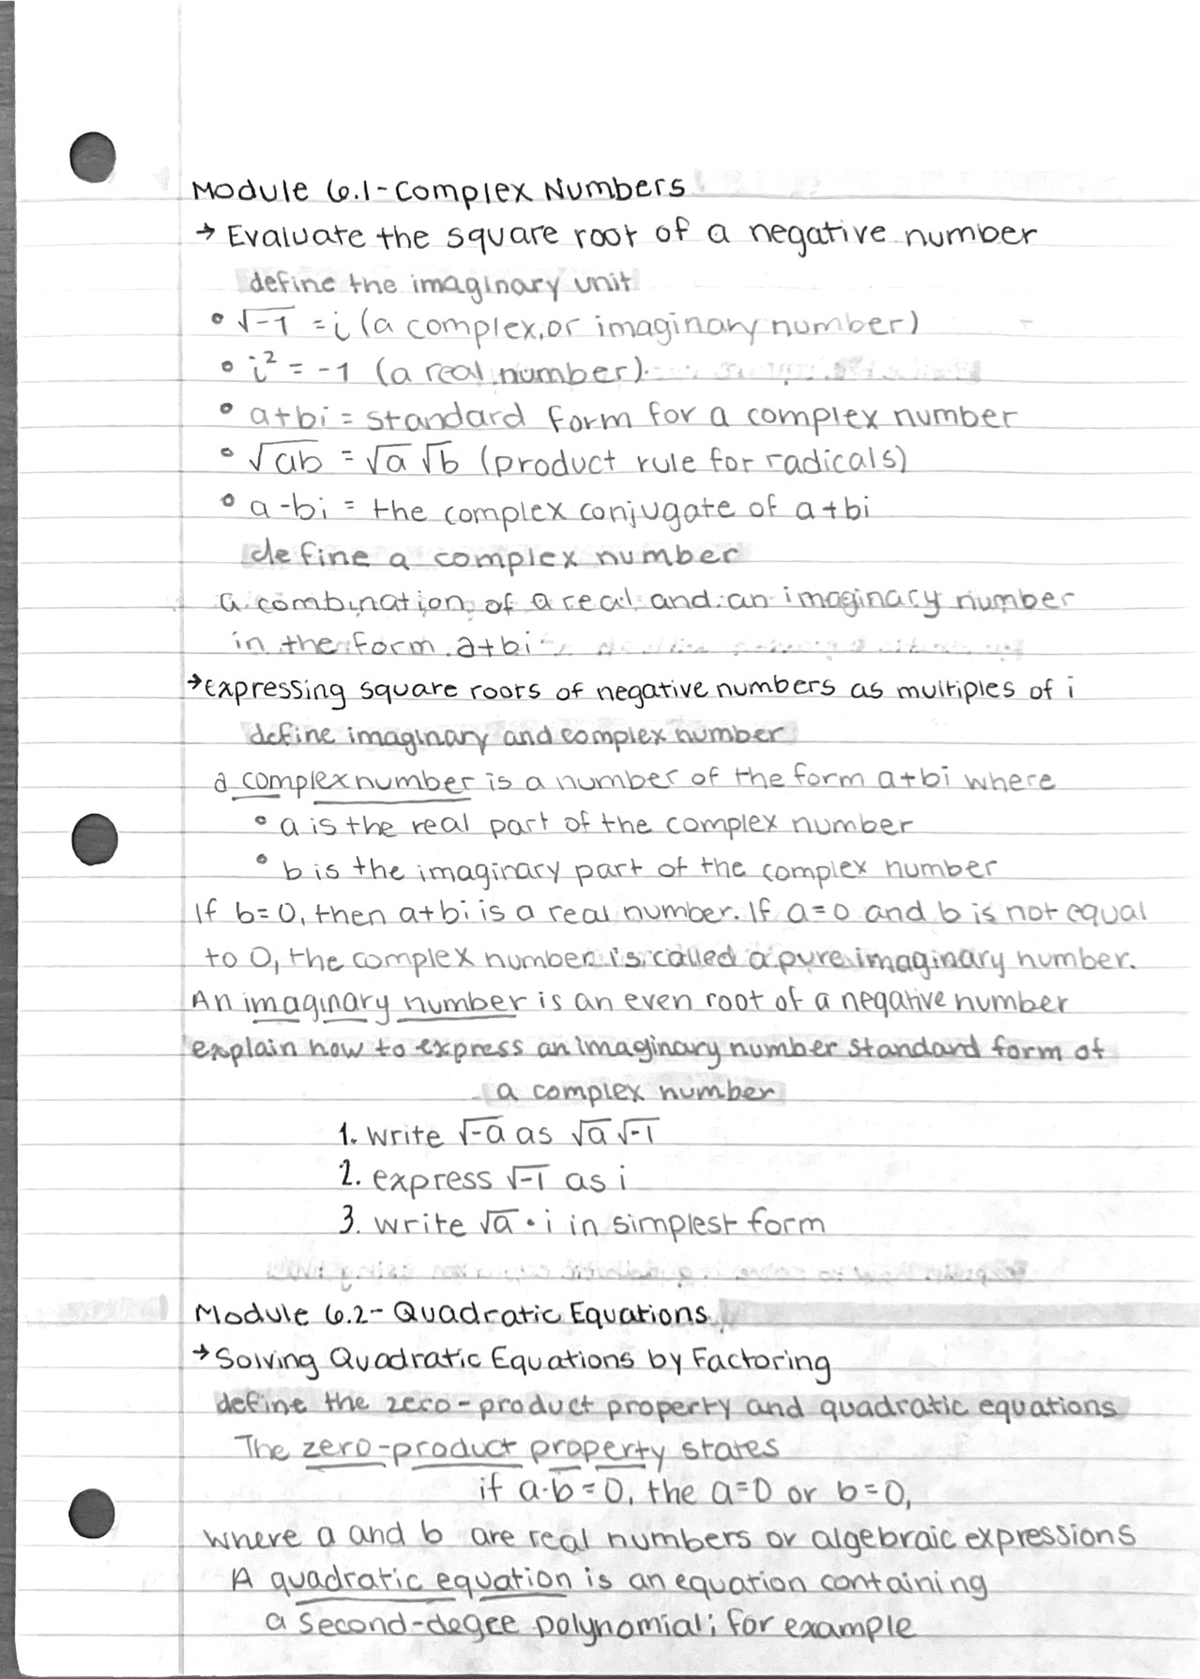 Module 6.1-Complex Numbers
→ Evaluate the square root of a negative number
define the imaginary unit
• √-1 = i (a complex, or imaginary number)
• i² = -1 (a real number)
• a+bi = standard form for a complex number
• √ab = √a √b (product rule for radicals)
• a-bi = the complex conjugate of a+bi
define a complex number
a combination of a real and an imaginary number
in the form a+bi
→ Expressing square roots of negative numbers as multiples of i
define imaginary and complex number
a complex number is a number of the form a+bi where
• a is the real part of the complex number
• b is the imaginary part of the complex number
If b=0, then a+bi is a real number. If a=0 and b is not equal
to 0, the complex number is called a pure imaginary number.
An imaginary number is an even root of a negative number
explain how to express an imaginary number standard form of
a complex number
1. write √-a as √a √-1
2. express √-1 as i
3. write √a • i in simplest form
Module 6.2- Quadratic Equations
→ Solving Quadratic Equations by Factoring
define the zero-product property and quadratic equations
The zero-product property states
if a·b=0, the a=0 or b=0,
where a and b are real numbers or algebraic expressions
A quadratic equation is an equation containing
a second-degee polynomial; for example